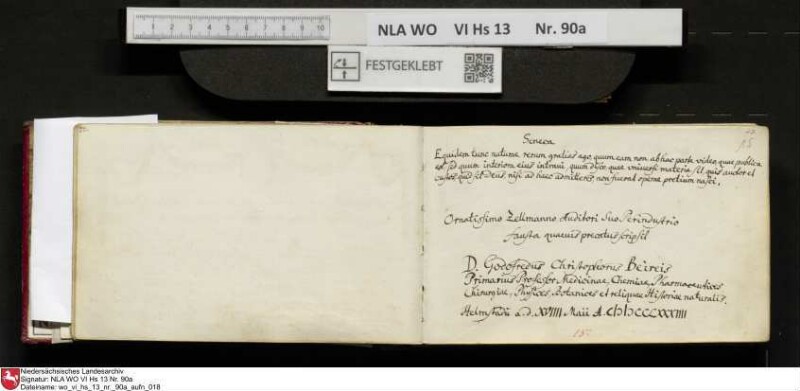 NLA WO VI Hs 13 Nr. 90a
FESTGEKLEBT
Seneca
Equidem tunc naturae rerum gratias ago, quum eam non ab hac parte video, quae publica
est, sed quum interiora eius intravi, quum disco, quae universi materia sit, quis auctor et
custos, quid sit deus, nisi ad haec admitterer, non fuerat operae pretium nasci.
Ornatissimo Zellmanno Auditori Suo Perindustrio
fausta quaevis precatus scripsit
D. Godofredus Christophorus Beireis
Primarius Professor Medicinae, Chemiae, Pharmaceutices
Chirurgiae, Physices, Botanices et reliquae Historiae naturalis.
Helmstadii a. d. XVIIII Maii A.
Niedersächsisches Landesarchiv
Signatur: NLA WO VI Hs 13 Nr. 90a
Dateiname: wo_vi_hs_13_nr._90a_aufn_018